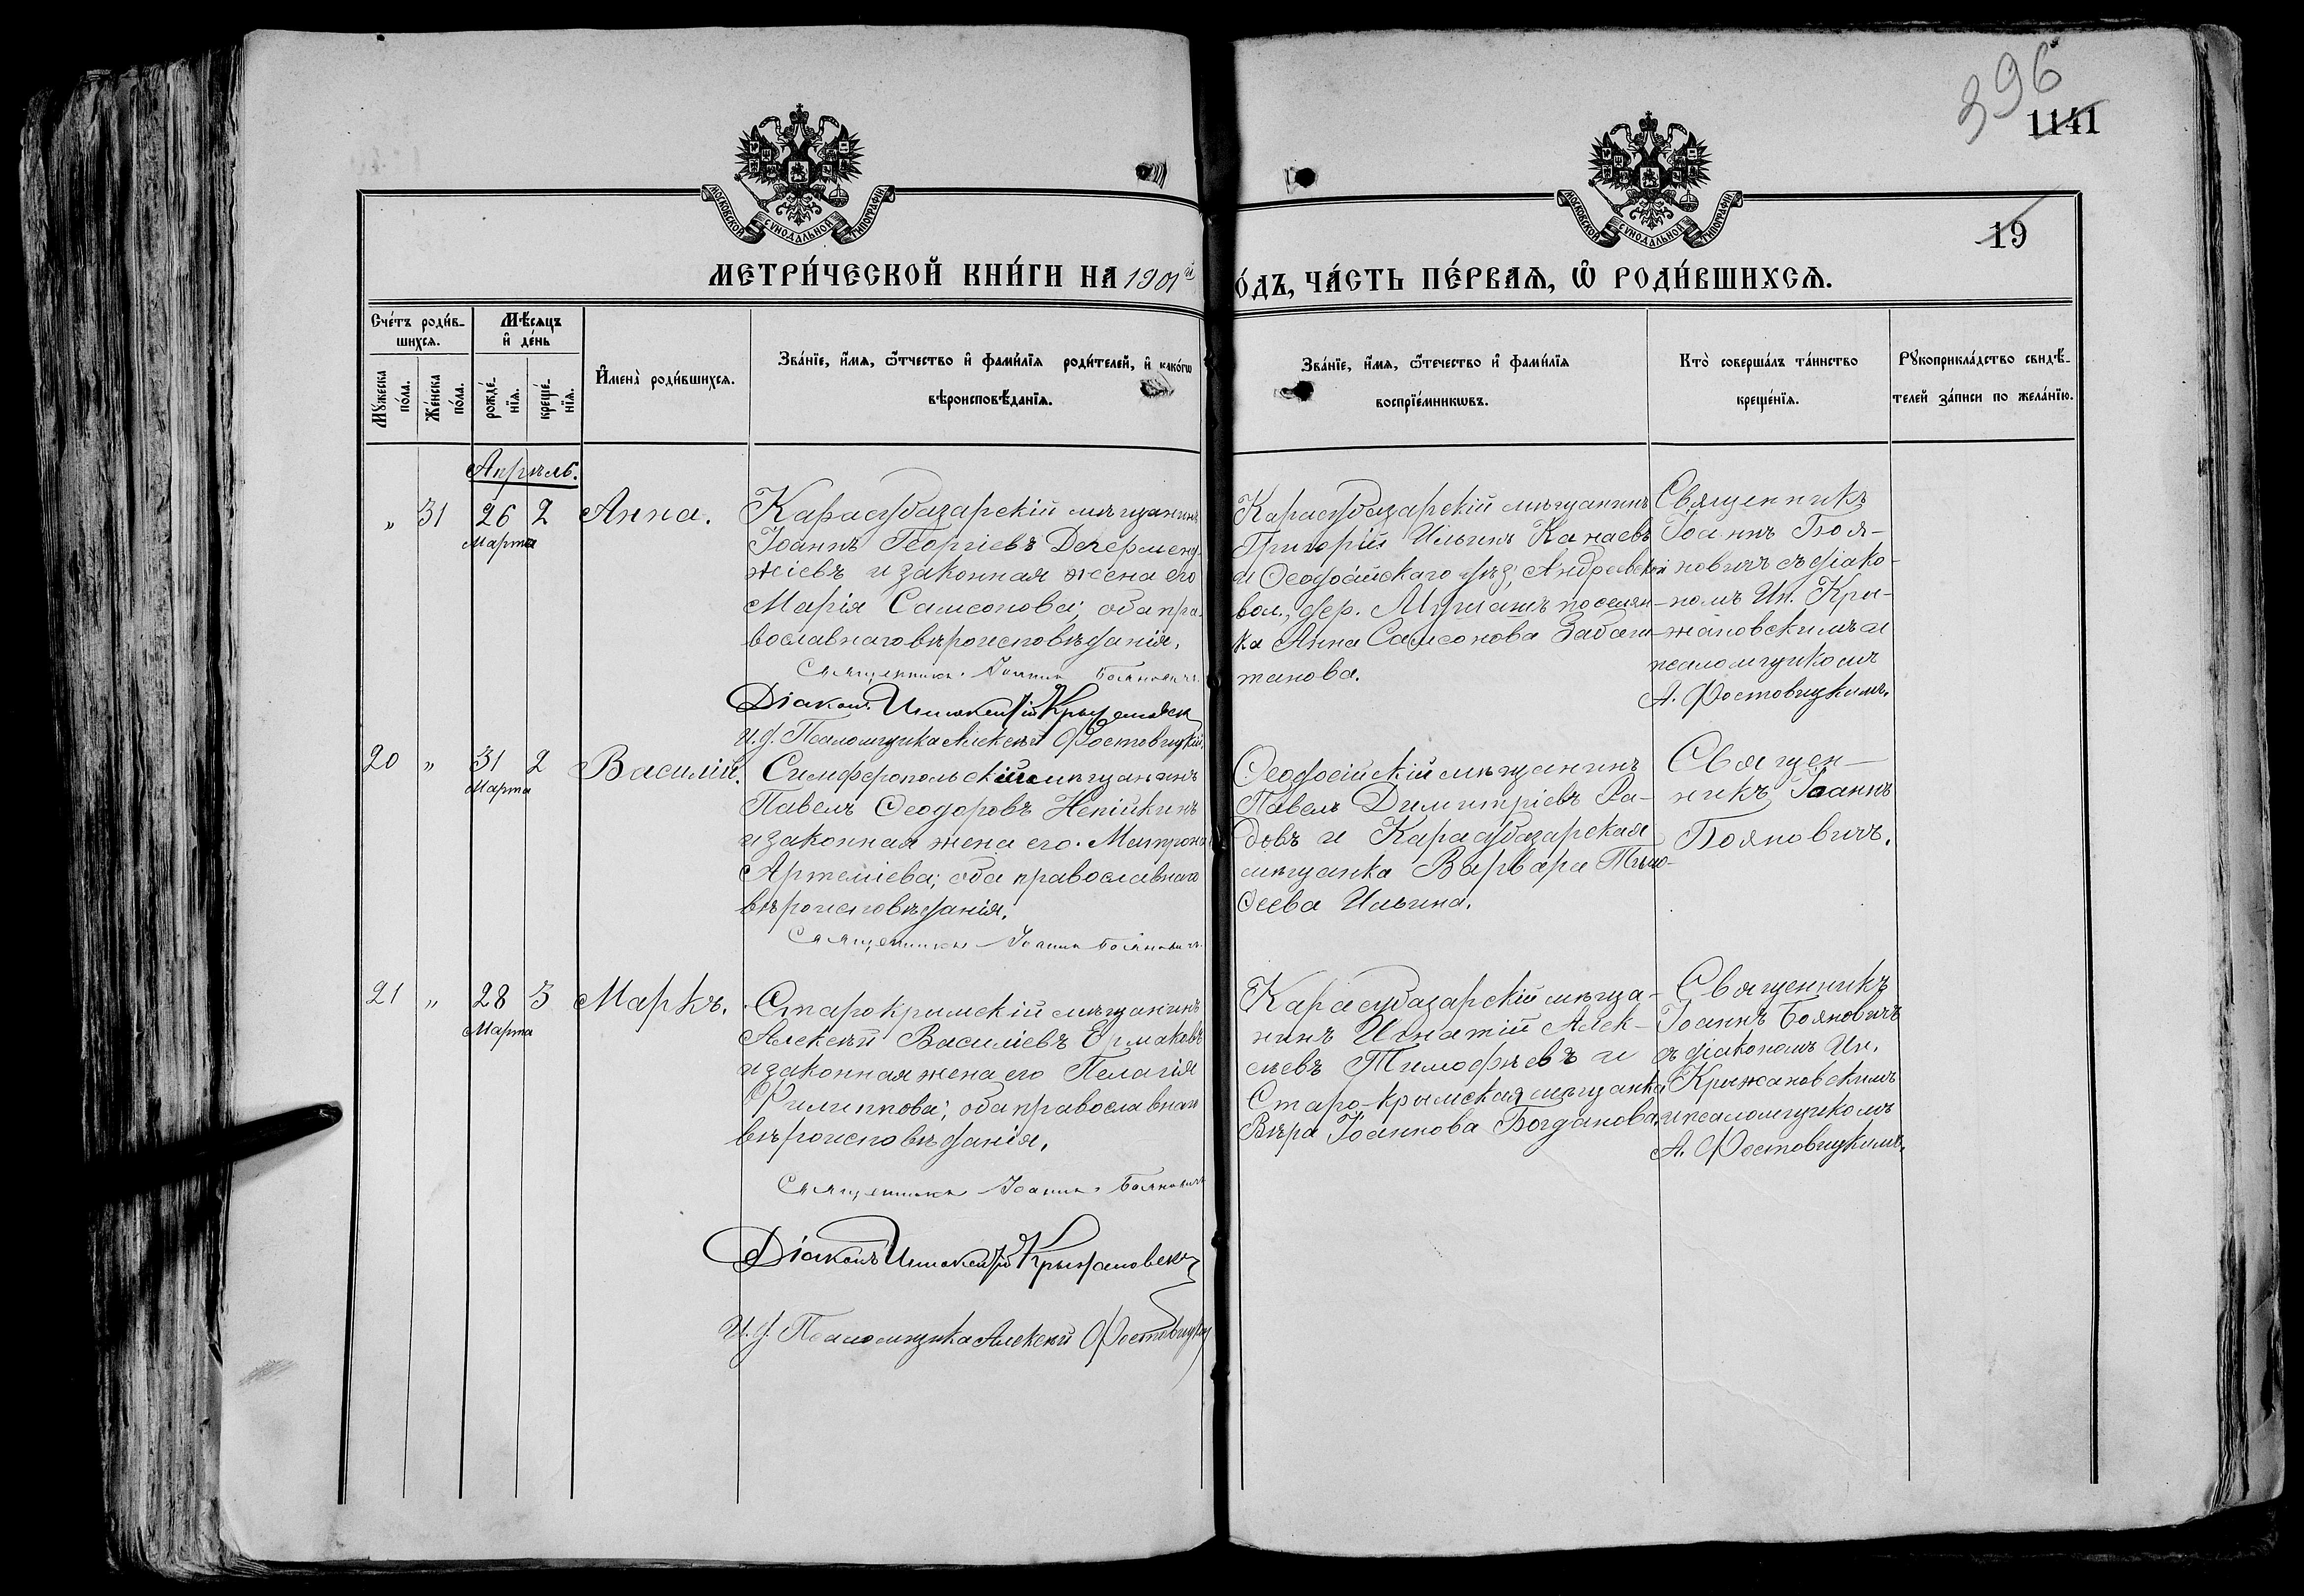 396
1141
МОСКОВСКОЙ СѴНОДАЛЬНОЙ ТИПОГРАФІИ
МОСКОВСКОЙ СѴНОДАЛЬНОЙ ТИПОГРАФІИ
19
МЕТРИ́ЧЕСКОЙ КНИ́ГИ НА 1901й
О́ДЪ, ЧА́СТЬ ПЕ́РВАѦ, Ѡ҆ РОДИ́ВШИХСѦ.
Сче́тъ роди́в-
шихсѧ.
Мѣ́сѧцъ
и҆ де́нь
Мꙋ́жеска по́ла.
Же́нска по́ла.
рожде́-нїѧ.
креще́-нїѧ.
И҆мена̀ роди́вшихсѧ.
Зва́нїе, и҆́мѧ, ѻ҆́тчество и҆ фами́лїѧ роди́телей, и҆ како́гѡ
вѣроисповѣ́данїѧ.
Зва́нїе, и҆́мѧ, ѻ҆те́чество и҆ фами́лїѧ
воспрїе́мникѡвъ.
Кто̀ соверша́лъ та́инство
креще́нїѧ.
Рꙋкоприкла́дство свидѣ́-
телей за́писи по жела́нїю.
Апрѣль.
„ 31 26 2 Анна.
Марта
Карасубазарскій мѣщанинъ
Іоаннъ Георгіевъ Декермend-
жіевъ и законная жена его
Марія Самсонова; оба пра-
вославнаго вѣроисповѣданія.
Священникъ Іоаннъ Бояновичъ
Діаконъ Иннокентій Крыжановск
И. д. Псаломщика Алексѣй Фостовицкій
Карасубазарскій мѣщанинъ
Григорій Ильинъ Канаевъ
и Ѳеодосійскаго уѣз, Андреевской
вол., дер. поселян-
ка Анна Самсонова Забаш-
танова.
Священникъ
Іоаннъ Боя-
новичъ съ діако-
номъ Ин. Кры-
жановскимъ и
псаломщикомъ
А. Фостовицкимъ.
20 „ 31 2 Василій.
Марта
Симферопольскій мѣщанинъ
Павелъ Ѳеодоровъ Непійкинъ
и законная жена его Матрона
Артеміева; оба православнаго
вѣроисповѣданія.
Священникъ Іоаннъ Бояновичъ
Ѳеодосійскій мѣщанинъ
Павелъ Димитріевъ Ра-
довъ и Карасубазарская
мѣщанка Варвара Тимо-
ѳеева Ильина.
Священ-
никъ Іоаннъ
Бояновичъ.
21 „ 28 3 Маркъ.
Марта
Старокрымскій мѣщанинъ
Алексѣй Василіевъ Ермаковъ
и законная жена его Пелагія
Филиппова; оба православнаго
вѣроисповѣданія.
Священникъ Іоаннъ Бояновичъ
Діаконъ Иннокентій Крыжановск
И. д. Псаломщика Алексѣй Фостовицкій
Карасубазарскій мѣща-
нинъ Игнатій Алек-
сѣевъ Тимофѣевъ и
Старо-крымская мѣщанка
Вѣра Іоаннова Богданова.
Священникъ
Іоаннъ Бояновичъ
съ діакономъ Ин.
Крыжановскимъ
и псаломщикомъ
А. Фостовицкимъ.